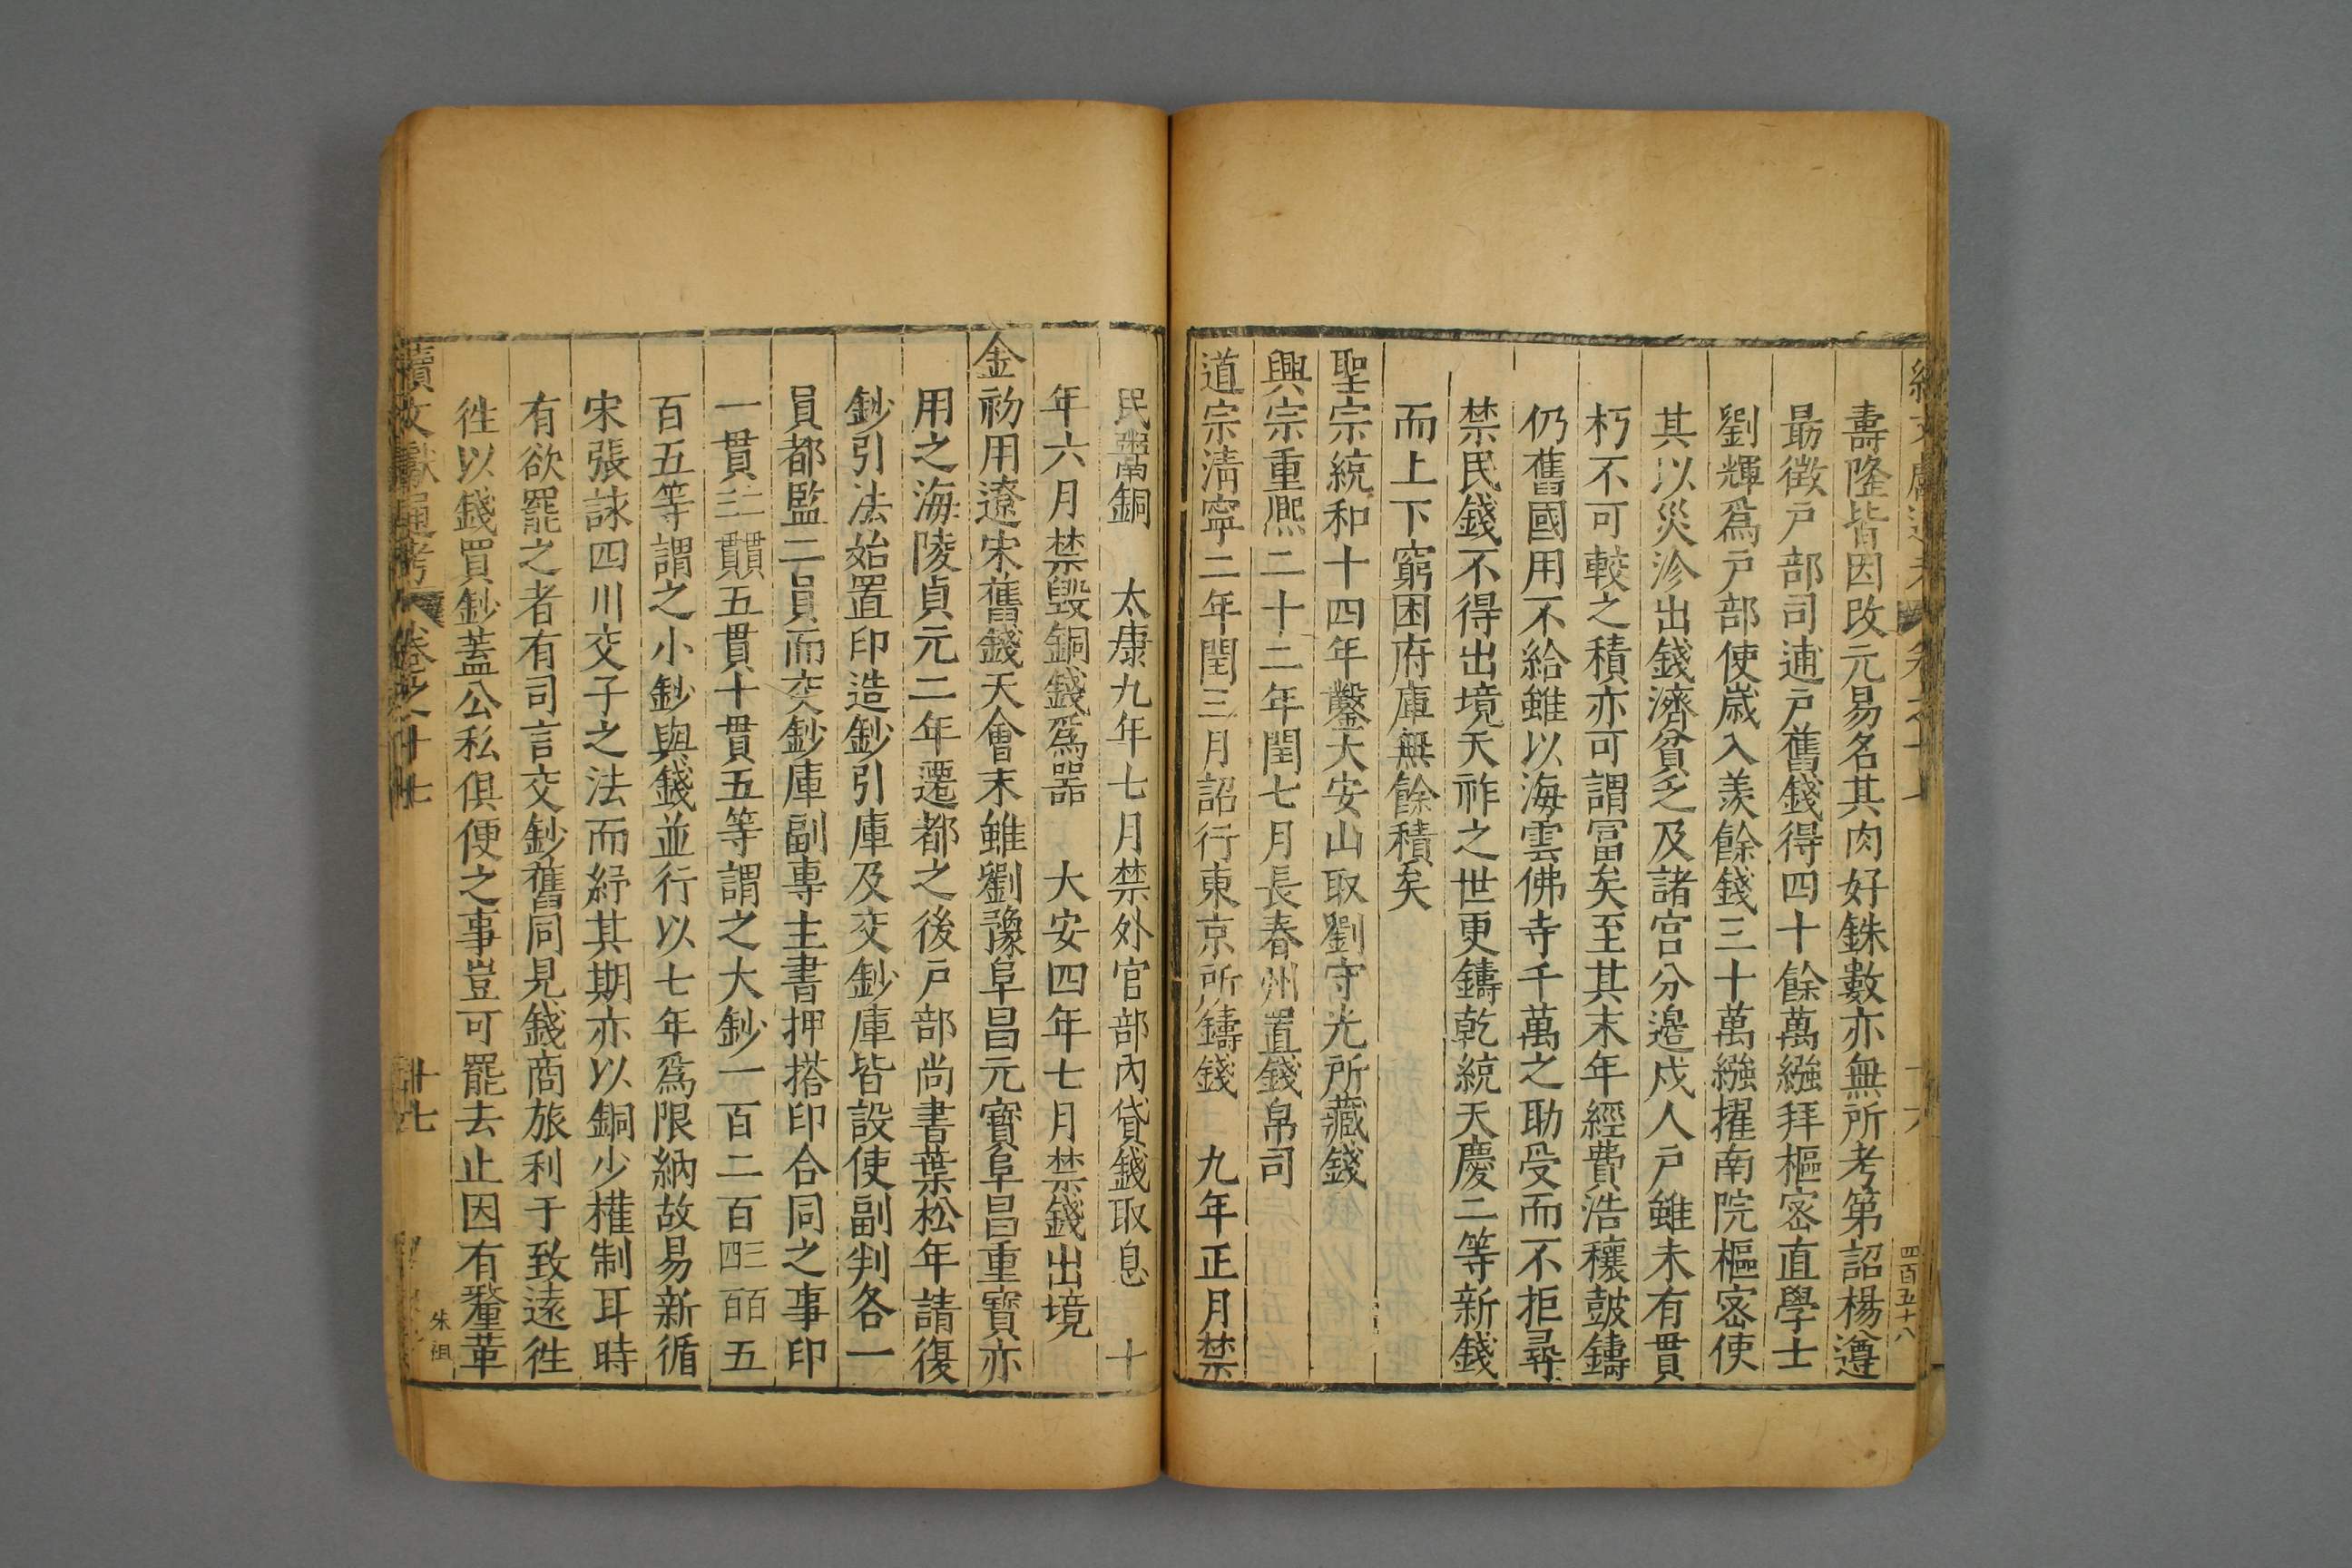 續文獻通考 卷之十七 十六 四百五十八
壽隆皆因改元易名其肉好銖數亦無所考第詔楊遵
最徴戸部司逋戸舊錢得四十餘萬繦拜樞密直學士
劉輝爲戸部使歳入羨餘錢三十萬繦擢南院樞密使
其以災沴出錢濟貧乏及諸宫分邉戍人戸雖未有貫
朽不可較之積亦可謂冨矣至其末年經費浩穰皷鑄
仍舊國用不給雖以海雲佛寺千萬之助受而不拒尋
禁民錢不得出境天祚之世更鑄乾統天慶二等新錢
而上下窮困府庫無餘積矣
聖宗統和十四年鑿大安山取劉守光所藏錢
興宗重熈二十二年閏七月長春州置錢帛司
道宗淸寧二年閏三月詔行東京所鑄錢 九年正月禁
民鬻銅 太康九年七月禁外官部內貸錢取息 十
年六月禁毁銅錢爲器 大安四年七月禁錢出境
金初用遼宋舊錢天會末雖劉豫阜昌元寳阜昌重寳亦
用之海陵貞元二年遷都之後戸部尚書葉松年請復
鈔引法始置印造鈔引庫及交鈔庫皆設使副判各一
員都監二員而交鈔庫副專主書押搭印合同之事印
一貫二貫三貫五貫十貫五等謂之大鈔一百二百三百四百五
百五等謂之小鈔與錢並行以七年爲限納故易新循
宋張詠四川交子之法而紓其期亦以銅少權制耳時
有欲罷之者有司言交鈔舊同見錢商旅利于致遠徃
徃以錢買鈔蓋公私俱便之事豈可罷去止因有釐革
續文獻通考 卷之十七 十七 朱祖